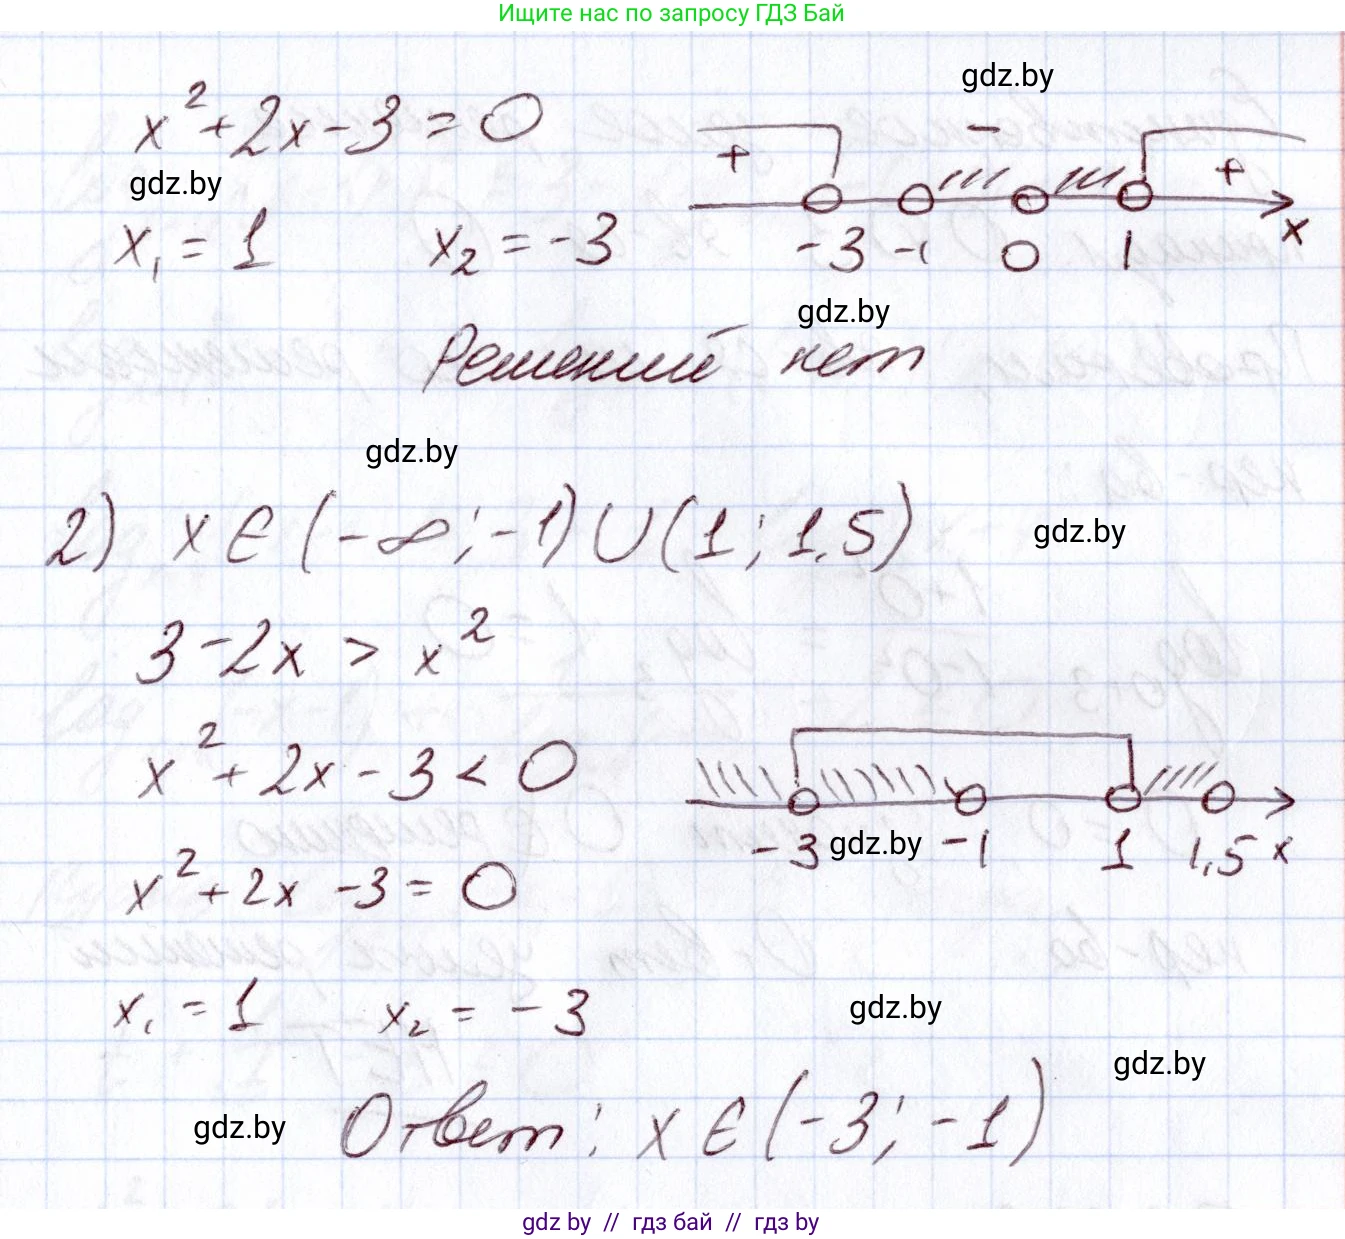 Ищите нас по запросу ГДЗ Бай
gdz.by
x² + 2x - 3 = 0
+ - +
gdz.by
x₁ = 1 x₂ = -3
-3 -1 0 1 x
gdz.by
Решений нет
gdz.by
2) x ∈ (-∞; -1) ∪ (1; 1,5)
gdz.by
3 - 2x > x²
x² + 2x - 3 < 0
-3 gdz.by -1 1 1,5 x
x² + 2x - 3 = 0
x₁ = 1 x₂ = -3
gdz.by
gdz.by
gdz.by
Ответ: x ∈ (-3; -1)
gdz by // гдз бай // гдз by